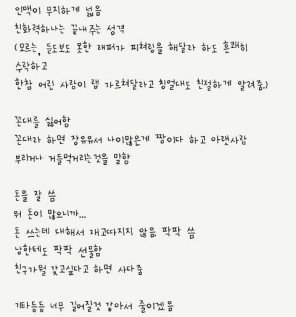 인맥이 무지하게 넓음
친화력하나는 끝내주는 성격
(모르는, 듣도보도 못한 래퍼가 피쳐링을 해달라 하도 흔쾌히
수락하고
한참 어린 사람이 랩 가르쳐달라고 징얼대도 친절하게 알려줌.)
꼰대를 싫어함
꼰대라 하면 장유유서 나이많은게 짱이다 하고 아랫사람
부리거나 거들먹거리는것을 말함
돈을 잘 씀
뭐 돈이 많으니까...
돈 쓰는데 대해서 재고따지지 않음 팍팍 씀
남한테도 팍팍 선물함
친구가뭘 갖고싶다고 하면 사다줌
기타등등 너무 길어질것 같아서 줄이겠음